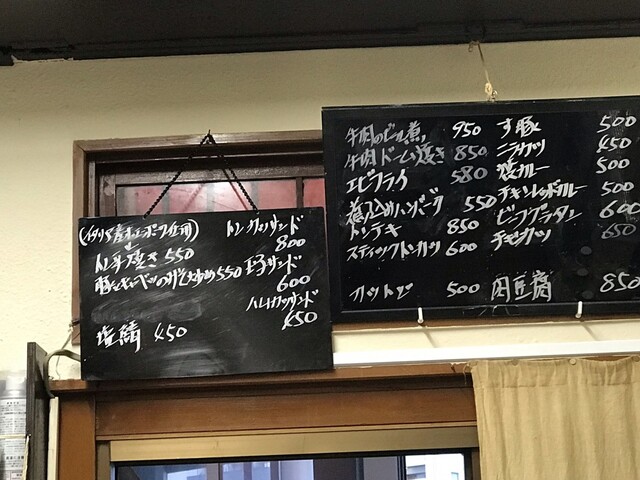 牛肉のビール煮 950
牛肉ドーム焼き 850
エビフライ 580
煮込みハンバーグ 550
トンテキ 850
スティックトンカツ 600
カツトジ 500
す豚 500
ニラカツ 450
焼カレー 500
チキンレッドカレー 500
ビーフグラタン 600
チキンカツ 650
肉豆腐 850
(イタリア産 使用)
焼き 550
豚とキャベツのみそ炒め 550
塩鯖 450
トンカツサンド
800
玉子サンド
600
ハムカツサンド
450